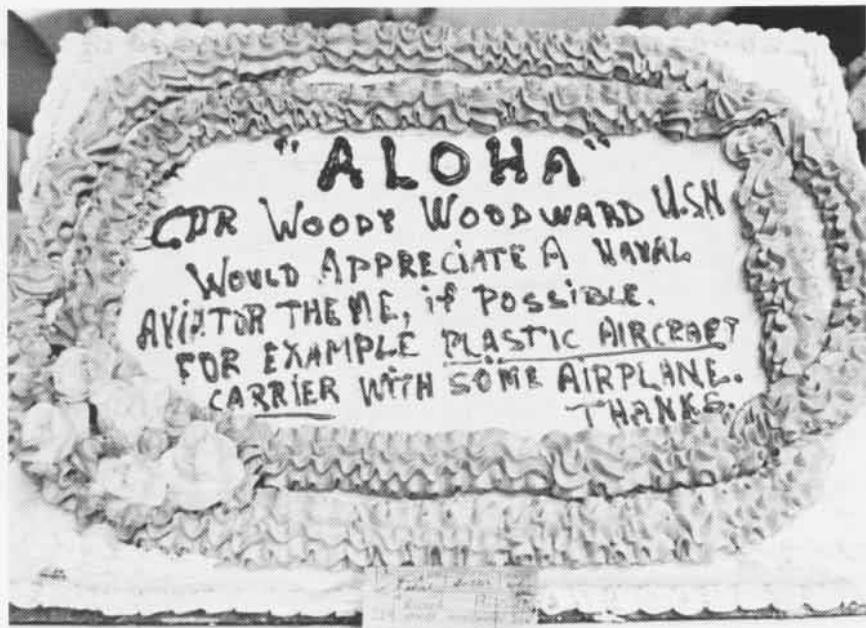 "ALOHA"
CDR WOODY WOODWARD U.S.N
WOULD APPRECIATE A NAVAL
AVIATOR THEME, if POSSIBLE.
FOR EXAMPLE PLASTIC AIRCRAFT
CARRIER WITH SOME AIRPLANE.
THANKS.